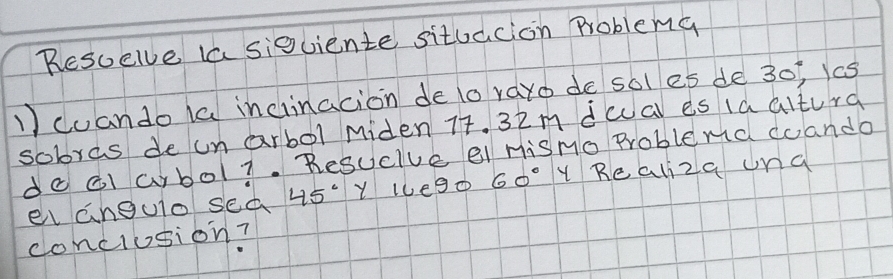 Resuelve la siguiente situación Problema
1) cuando la inclinación de lo rayo de sol es de 30°, las
sobras de un arbol Miden 17.32 m ¿cual es la altura
de el arbol?. Resuelve el mismo Problema cuando
el ángulo sea 45° y luego 60° y Realiza una
conclusión?